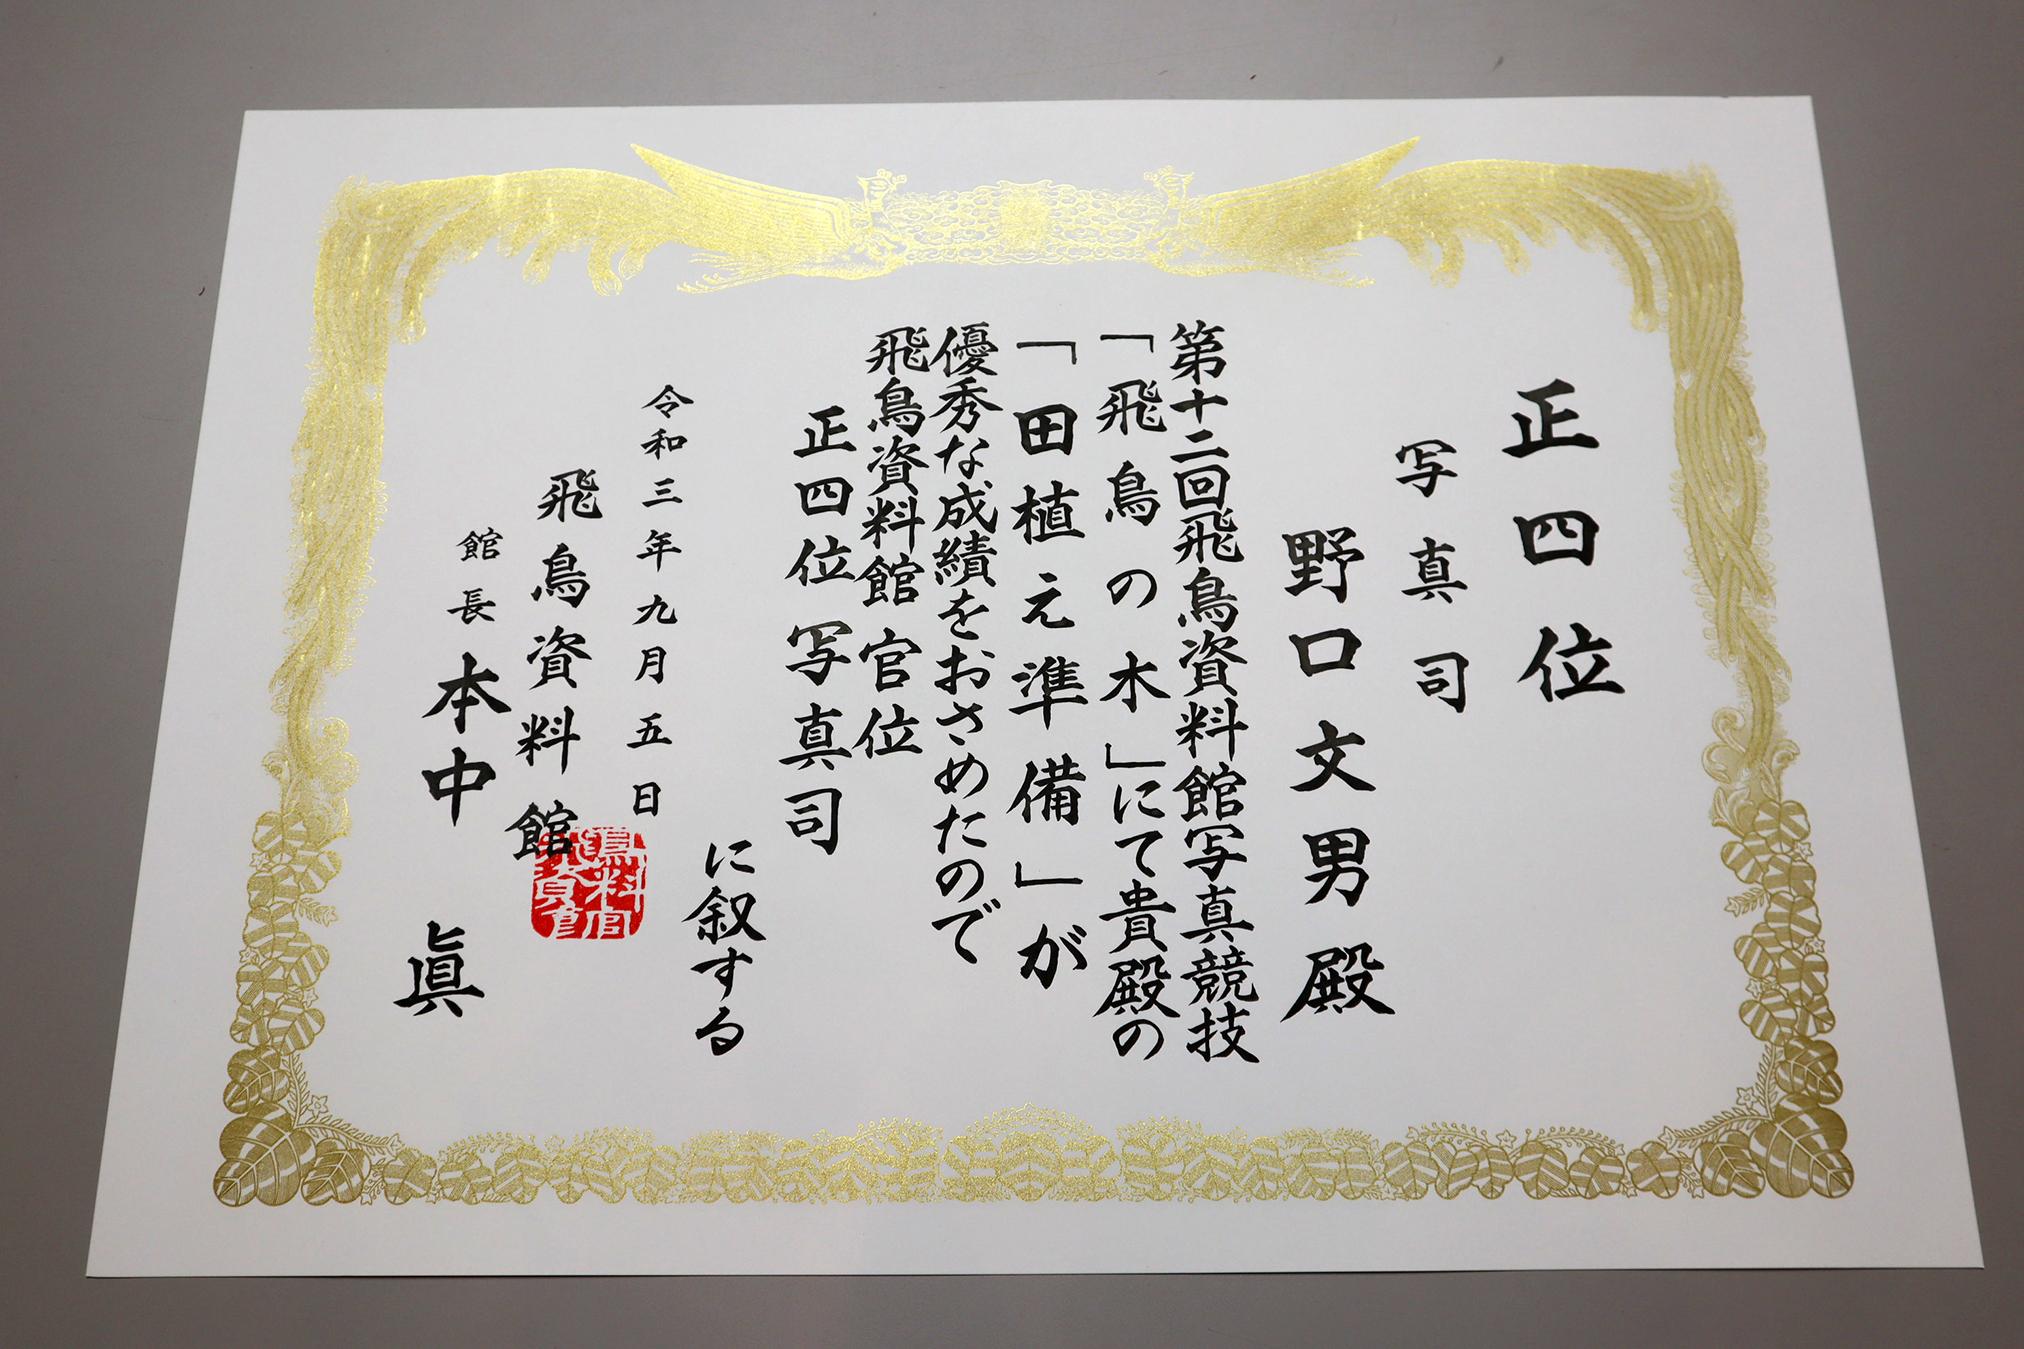 正四位
写真司
野口文男殿
第十二回飛鳥資料館写真競技
「飛鳥の木」にて貴殿の
「田植え準備」が
優秀な成績をおさめたので
飛鳥資料館官位
正四位写真司
に叙する
令和三年九月五日
飛鳥資料館
館長 本中 眞